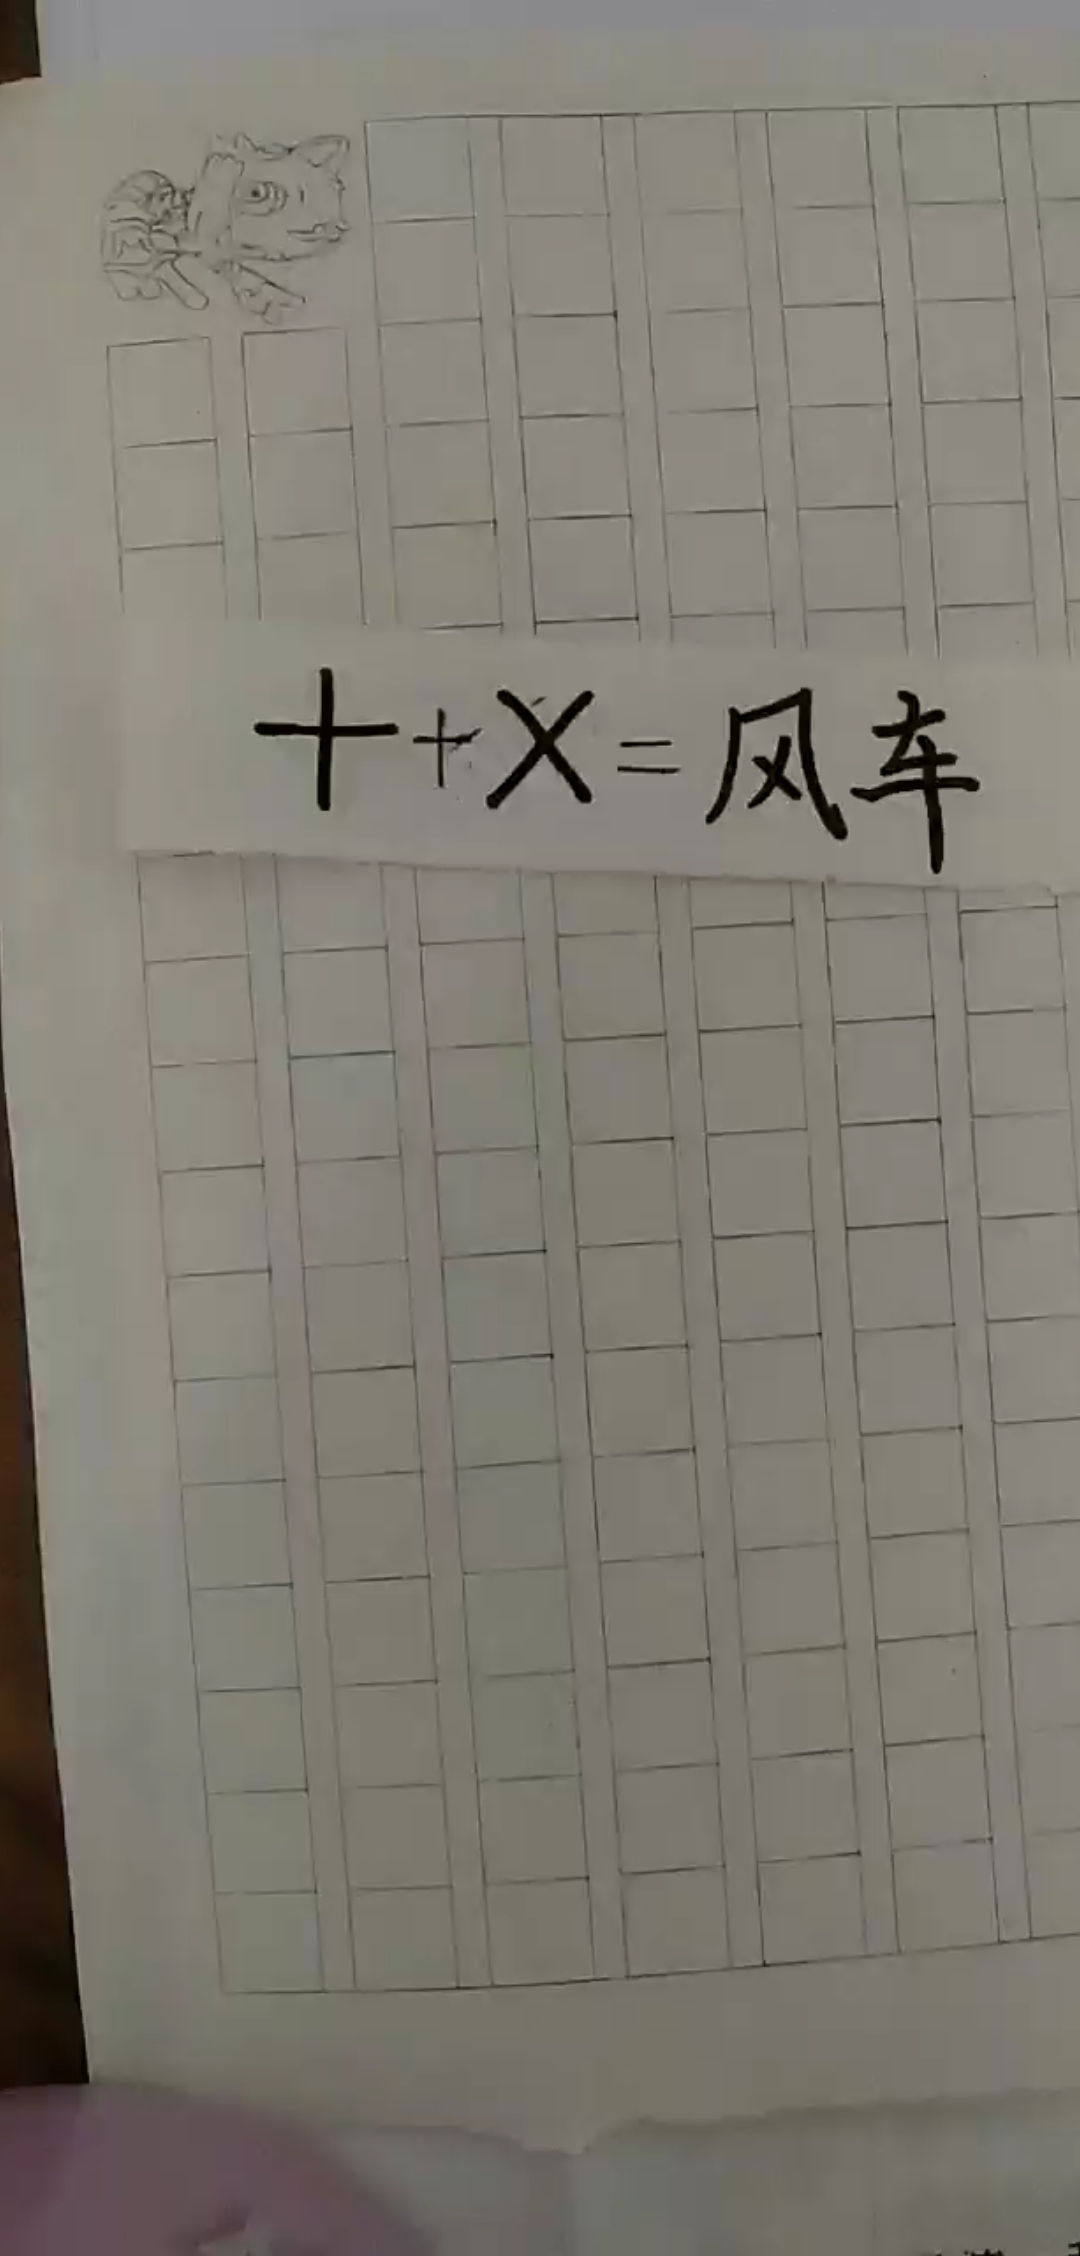 十+X=风车